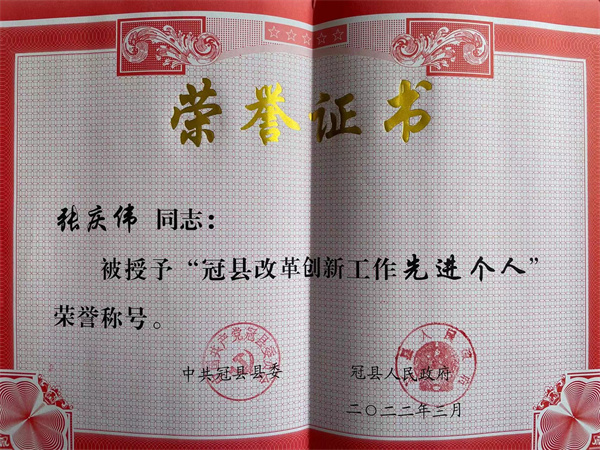 荣誉证书
张庆伟 同志：
被授予“冠县改革创新工作先进个人”
荣誉称号。
中共冠县县委 冠县人民政府
二〇二二年三月